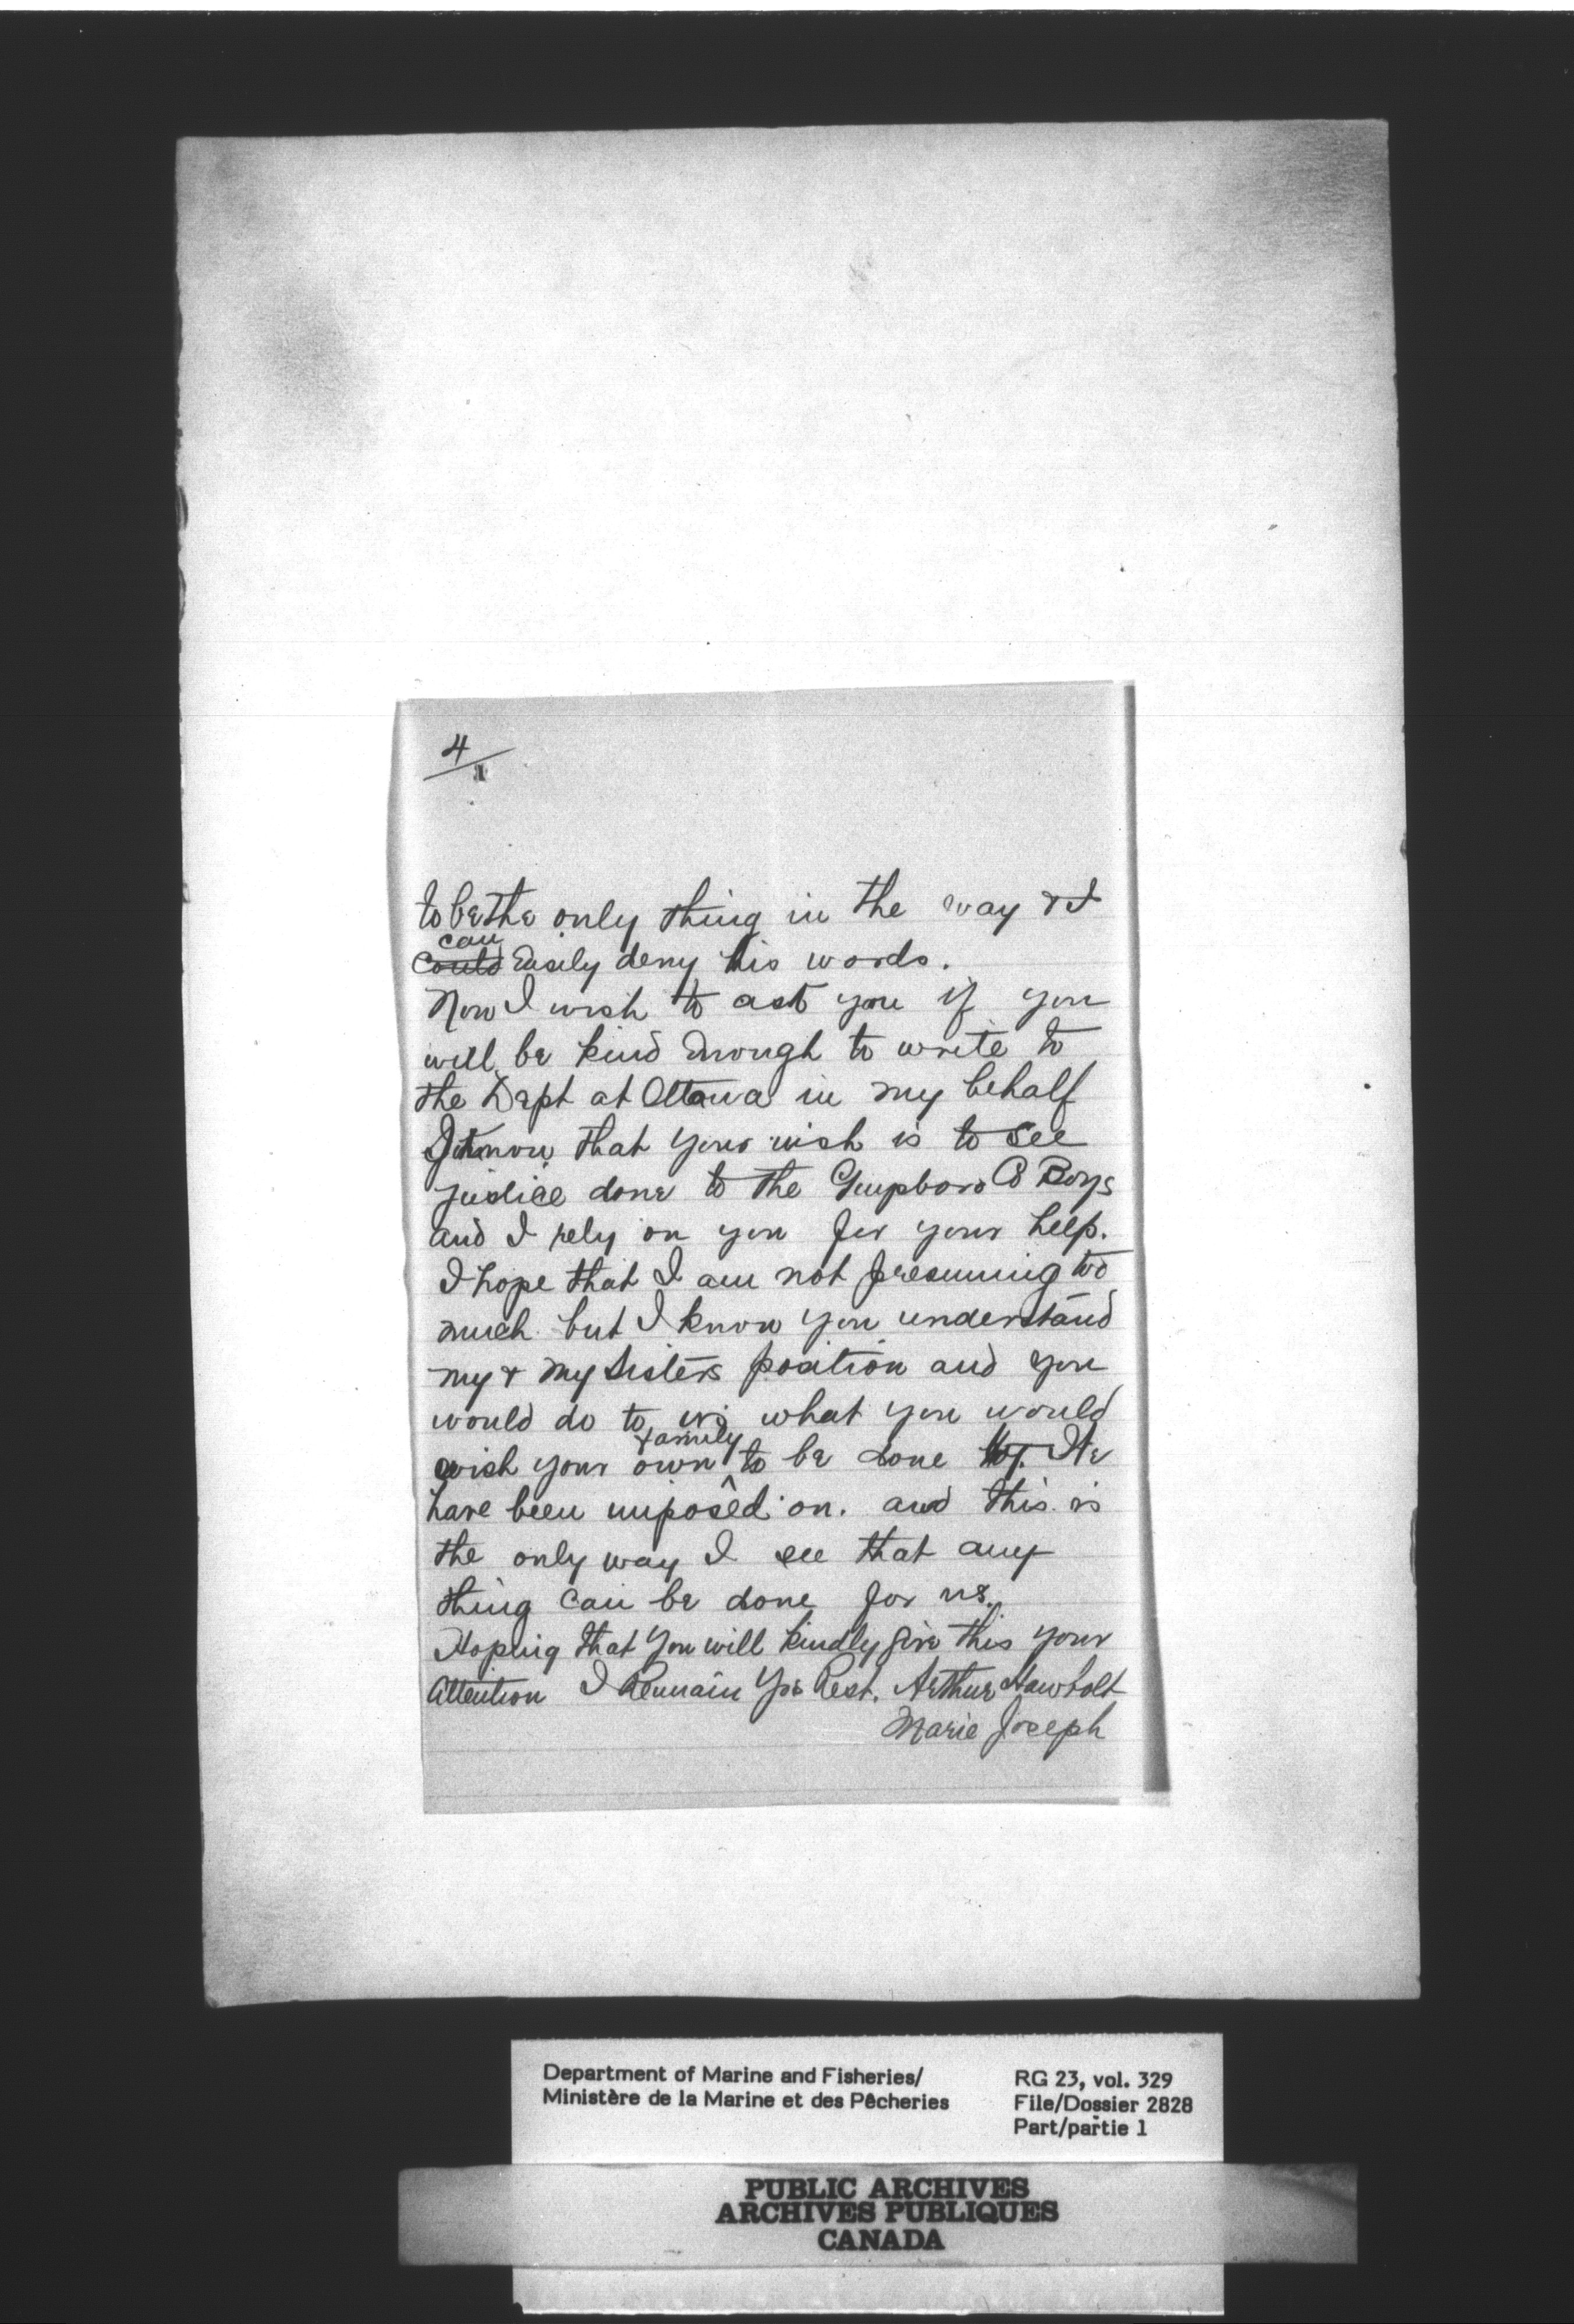 4/1
to be the only thing in the way & I
can
could Easily deny his words.
Now I wish to ask you if you
will be kind Enough to write to
the Dept at Ottawa in my behalf
I know that your wish is to see
justice done to the Guysboro Co Boys
and I rely on you for your help.
I hope that I am not presuming too
much but I know you understand
my & my sisters position and you
would do to us what you would
family
wish your own ^ to be done by. We
have been imposed on. and this is
the only way I see that any
thing can be done for us.
Hoping that you will kindly give this your
attention I Remain Yrs Rest. Arthur Hawbolt
Marie Joseph
Department of Marine and Fisheries/
Ministère de la Marine et des Pêcheries
RG 23, vol. 329
File/Dossier 2828
Part/partie 1
PUBLIC ARCHIVES
ARCHIVES PUBLIQUES
CANADA